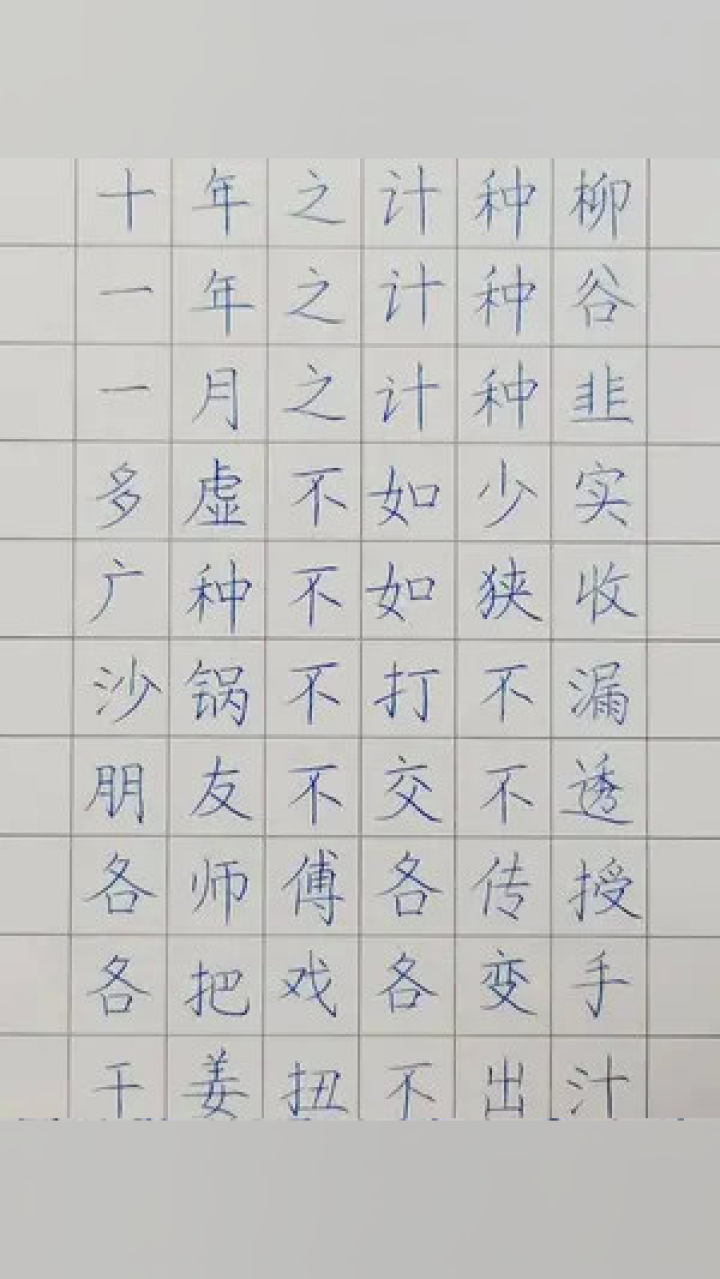 十年之计种柳
一年之计种谷
一月之计种韭
多虚不如少实
广种不如狭收
沙锅不打不漏
朋友不交不透
各师傅各传授
各把戏各变手
干姜扭不出汁